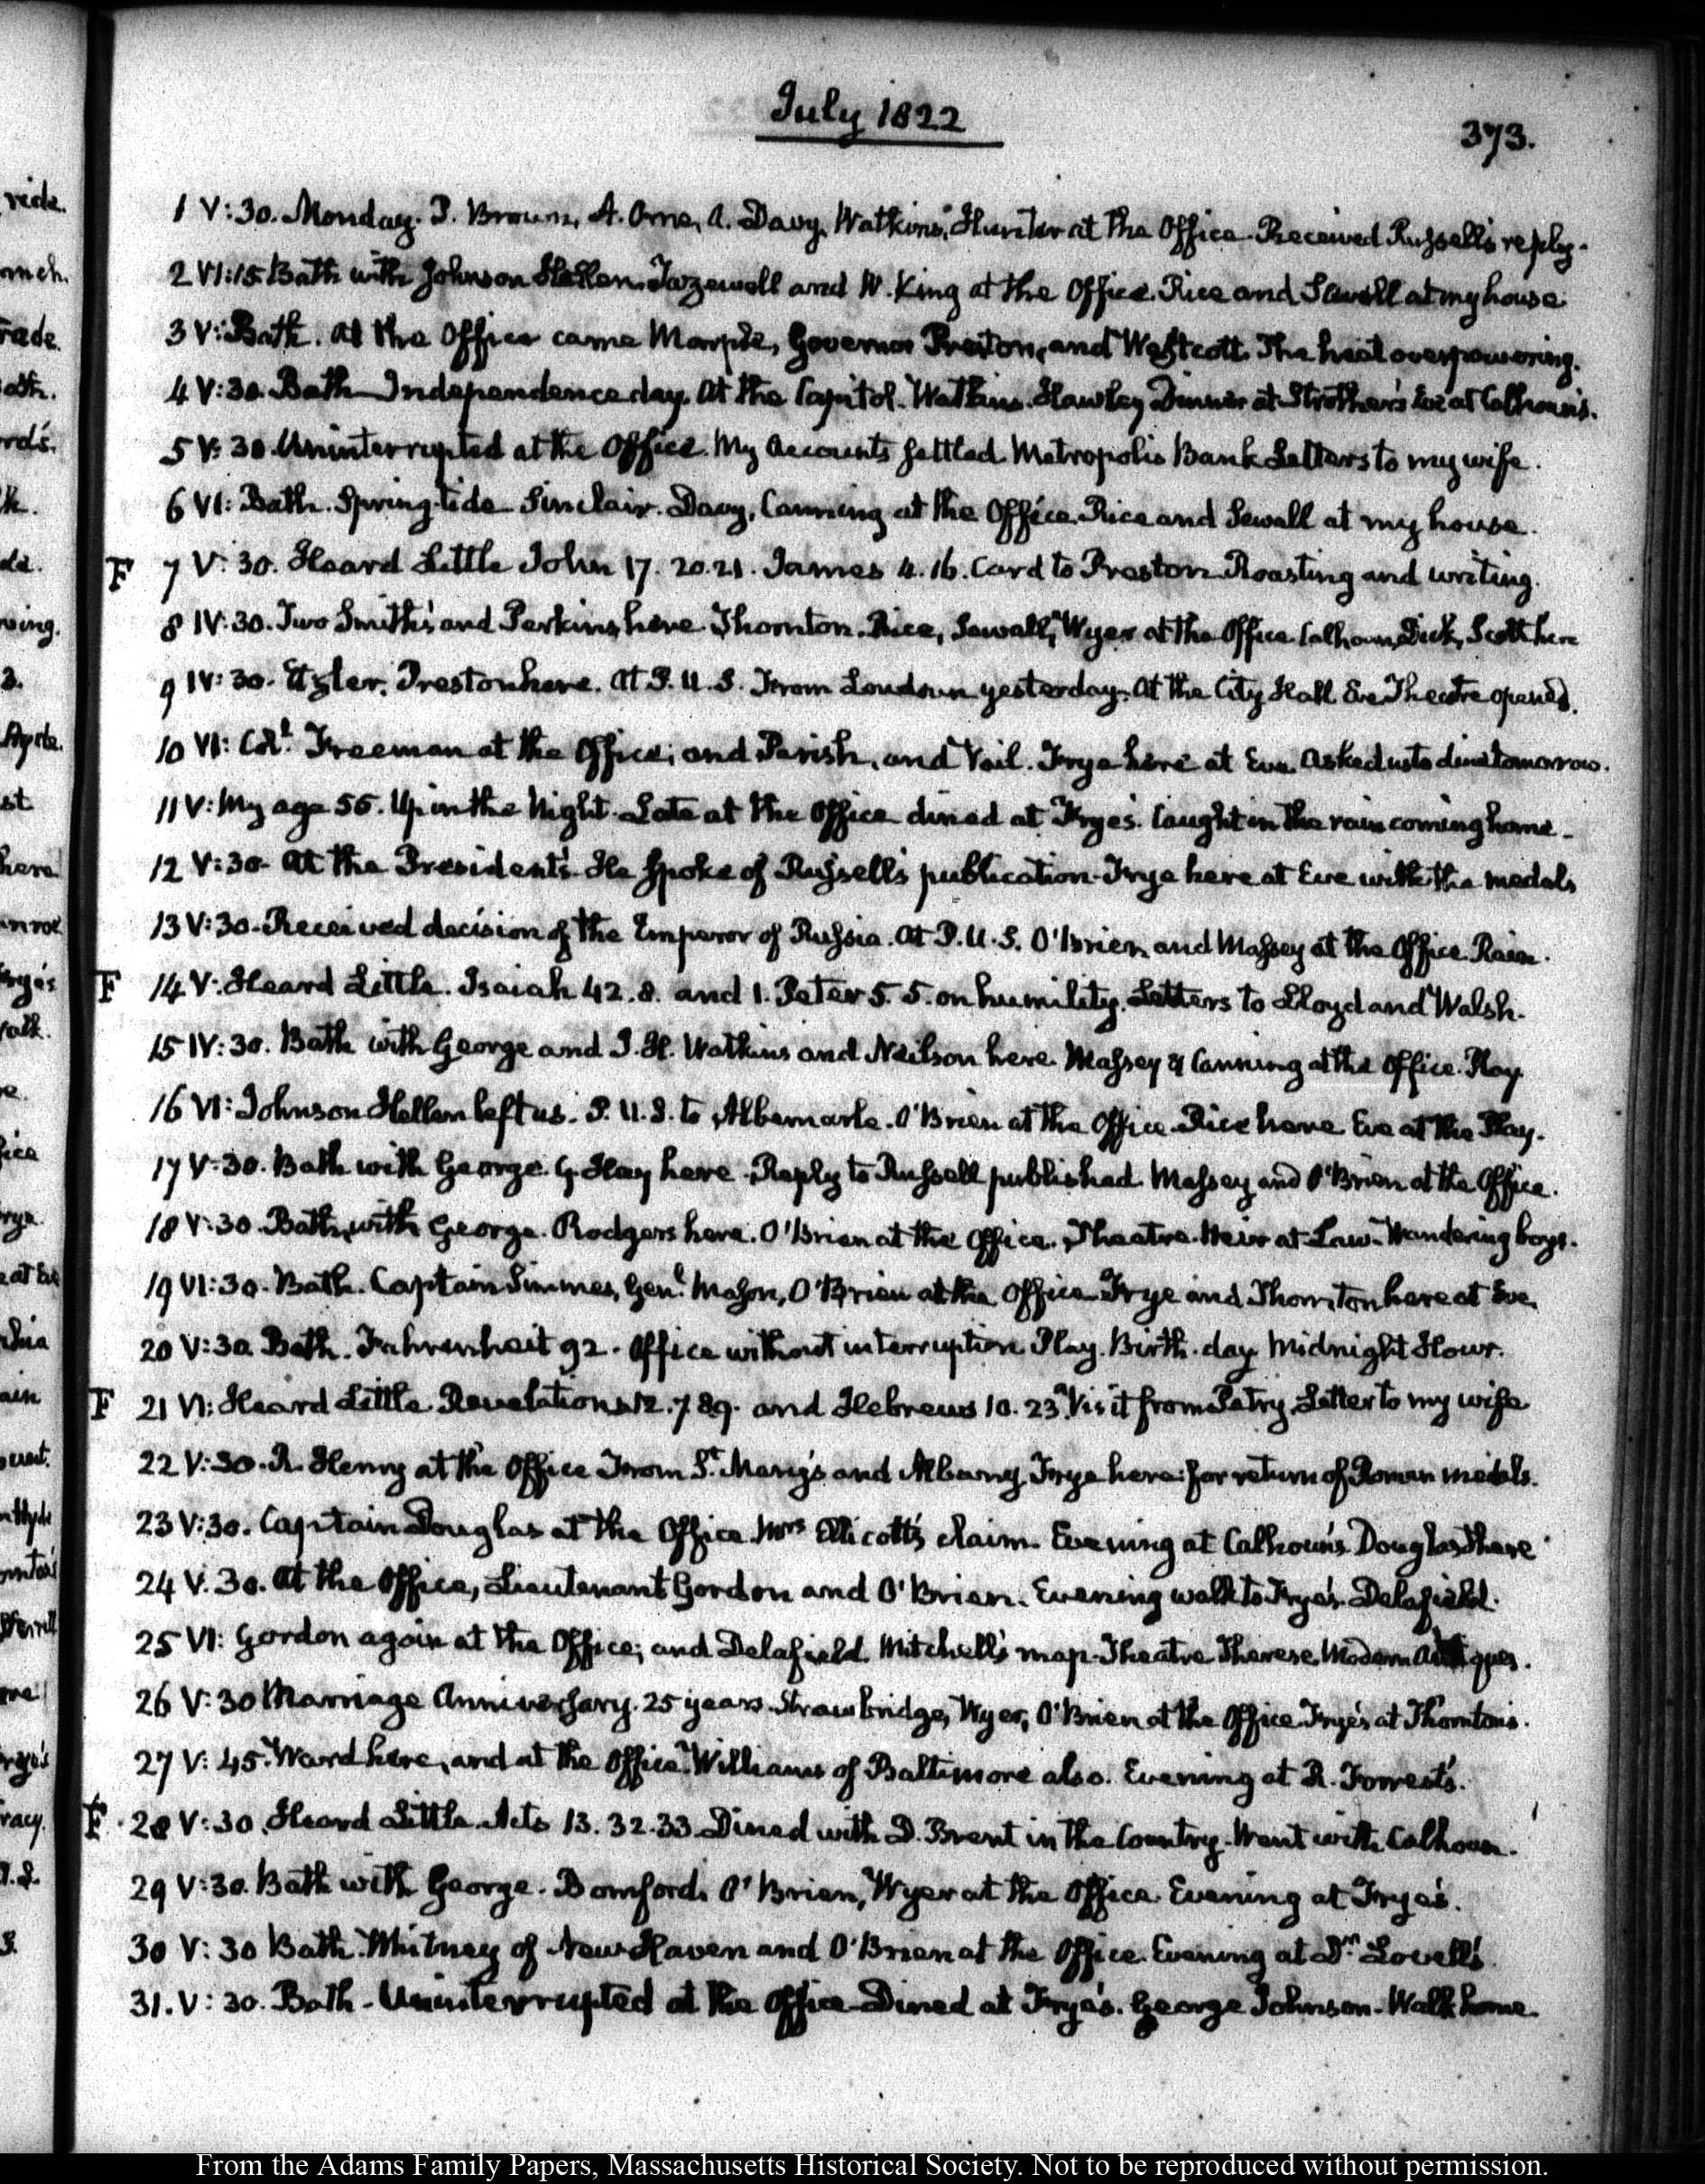 July 1822
373.
1 V:30. Monday. P. Brown, A. Orne, A. Davy, Watkins, Hunter at the Office. Received Russell's reply.
2 VI:15. Bath with Johnson Hellen. Tazewell and W. King at the Office. Rice and Sewall at my house.
3 V: Bath. At the Office came Marple, Governor Preston, and Westcott. The heat overpowering.
4 V:30. Bath— Independence day. At the Capitol. Watkins. Hawley Dinner at Strother's Eve at Calhoun's.
5 V:30. Uninterrupted at the Office. My Accounts settled. Metropolis Bank Letters to my wife.
6 VI: Bath. Spring-tide Sinclair. Davy, Canning at the Office. Rice and Sewall at my house.
F 7 V:30. Heard Little John 17. 20.21. James 4.16. Card to Preston Roasting and writing.
8 IV:30. Two Smith's and Perkins here. Thornton. Rice, Sewall, Wyer at the Office Calhoun, Dick, Scott here
9 IV:30. Preston here. At P.U.S. From Loudoun yesterday. At the City Hall Eve Theatre opened.
10 VI: Colt. Freeman at the Office; and Parish, and Vail. Frye here at Eve. Asked us to dine tomorrow.
11 V: My age 55. Up in the Night. Late at the Office dined at Frye's. Caught in the rain coming home.
12 V:30. At the President's. He spoke of Russell's publication. Frye here at Eve with the medals
13 V:30. Received decision of the Emperor of Russia. At P.U.S. O'Brien and Massey at the Office. Rain.
F 14 V: Heard Little. Isaiah 42.8. and 1. Peter 5.5. on humility. Letters to Lloyd and Walsh.
15 IV:30. Bath with George and J. H. Watkins and Neilson here. Massey & Canning at the Office. Play.
16 VI: Johnson Hellen left us. P.U.S. to Albemarle. O'Brien at the Office. Rice here. Eve at the Play.
17 V:30. Bath with George. G. Hay here. Reply to Russell published. Massey and O'Brien at the Office.
18 V:30. Bath, with George. Rodgers here. O'Brien at the Office. Theatre. Heir at Law. Wandering boys.
19 VI:30. Bath. Captain Simmes, Genl. Mason, O'Brien at the Office Frye and Thornton here at Eve.
20 V:30. Bath. Fahrenheit 92. Office without interruption Play. Birth-day. Midnight Hour.
F 21 VI: Heard Little. Revelations 12.7 8.9. and Hebrews 10. 23. Visit from Petry. Letter to my wife
22 V:30. R. Henry at the Office From St. Mary's and Albany. Frye here: for return of Roman medals.
23 V:30. Captain Douglas at the Office. Mrs Ellicott's claim. Evening at Calhoun's. Douglas there
24 V.30. At the Office, Lieutenant Gordon and O'Brien. Evening walk to Frye's. Delafield.
25 VI: Gordon again at the Office; and Delafield. Mitchell's map. Theatre Therese, Modern Antiques.
26 V:30 Marriage Anniversary. 25 years. Strawbridge, Wyer, O'Brien at the Office. Frye's at Thornton's.
27 V:45. Ward here, and at the Office. Williams of Baltimore also. Evening at R. Forrest's.
F 28 V:30. Heard Little. Acts 13. 32.33. Dined with D. Brent in the Country. Went with Calhoun.
29 V:30. Bath with George. Bomford. O'Brien, Wyer at the Office. Evening at Frye's.
30 V:30 Bath. Whitney of New-Haven and O'Brien at the Office. Evening at Dr. Lovell's.
31. V:30. Bath. Uninterrupted at the Office. Dined at Frye's. George Johnson. Walk home.
From the Adams Family Papers, Massachusetts Historical Society. Not to be reproduced without permission.